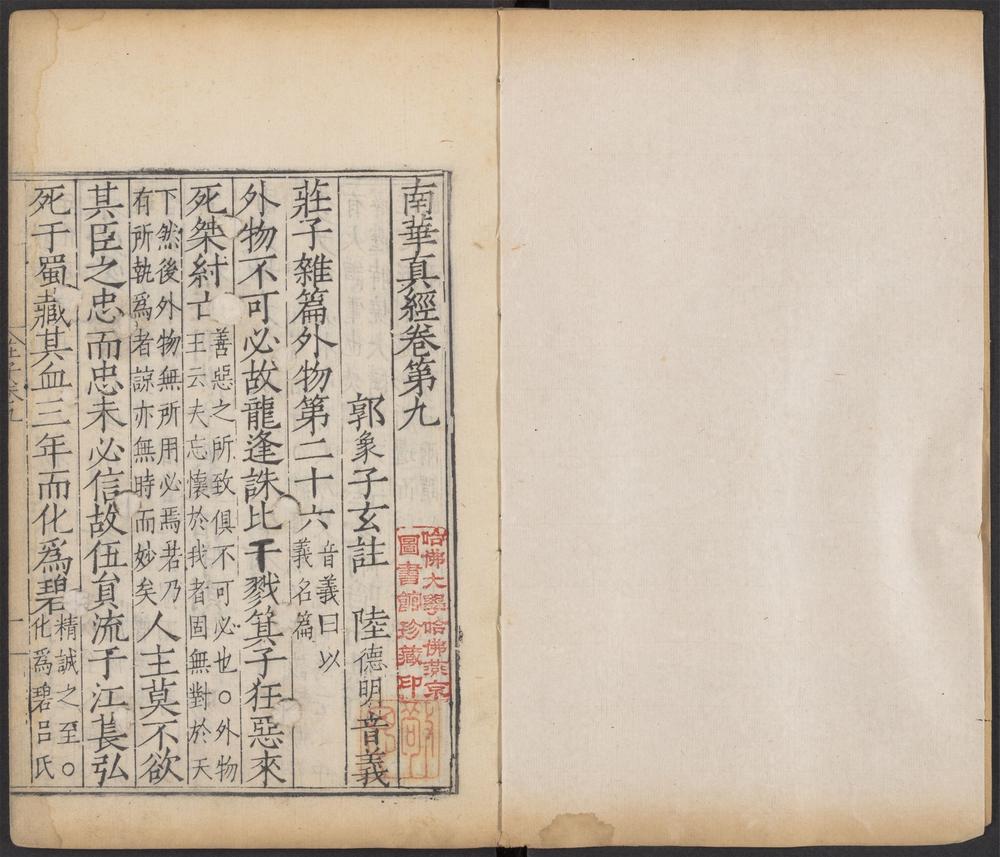 南華真經卷第九
郭象子玄註 陸德明音義
莊子雜篇外物第二十六
音義曰以
義名篇
外物不可必故龍逢誅比干戮箕子狂惡來
死桀紂亡
善惡之所致俱不可必也○外物
王云夫忘懷於我者固無對於天
下然後外物無所用必焉若乃
有所執爲者諒亦無時而妙矣
人主莫不欲
其臣之忠而忠未必信故伍貟流于江萇弘
死于蜀藏其血三年而化爲碧
精誠之至○
化爲碧呂氏
哈佛大學哈佛燕京
圖書館珍藏印